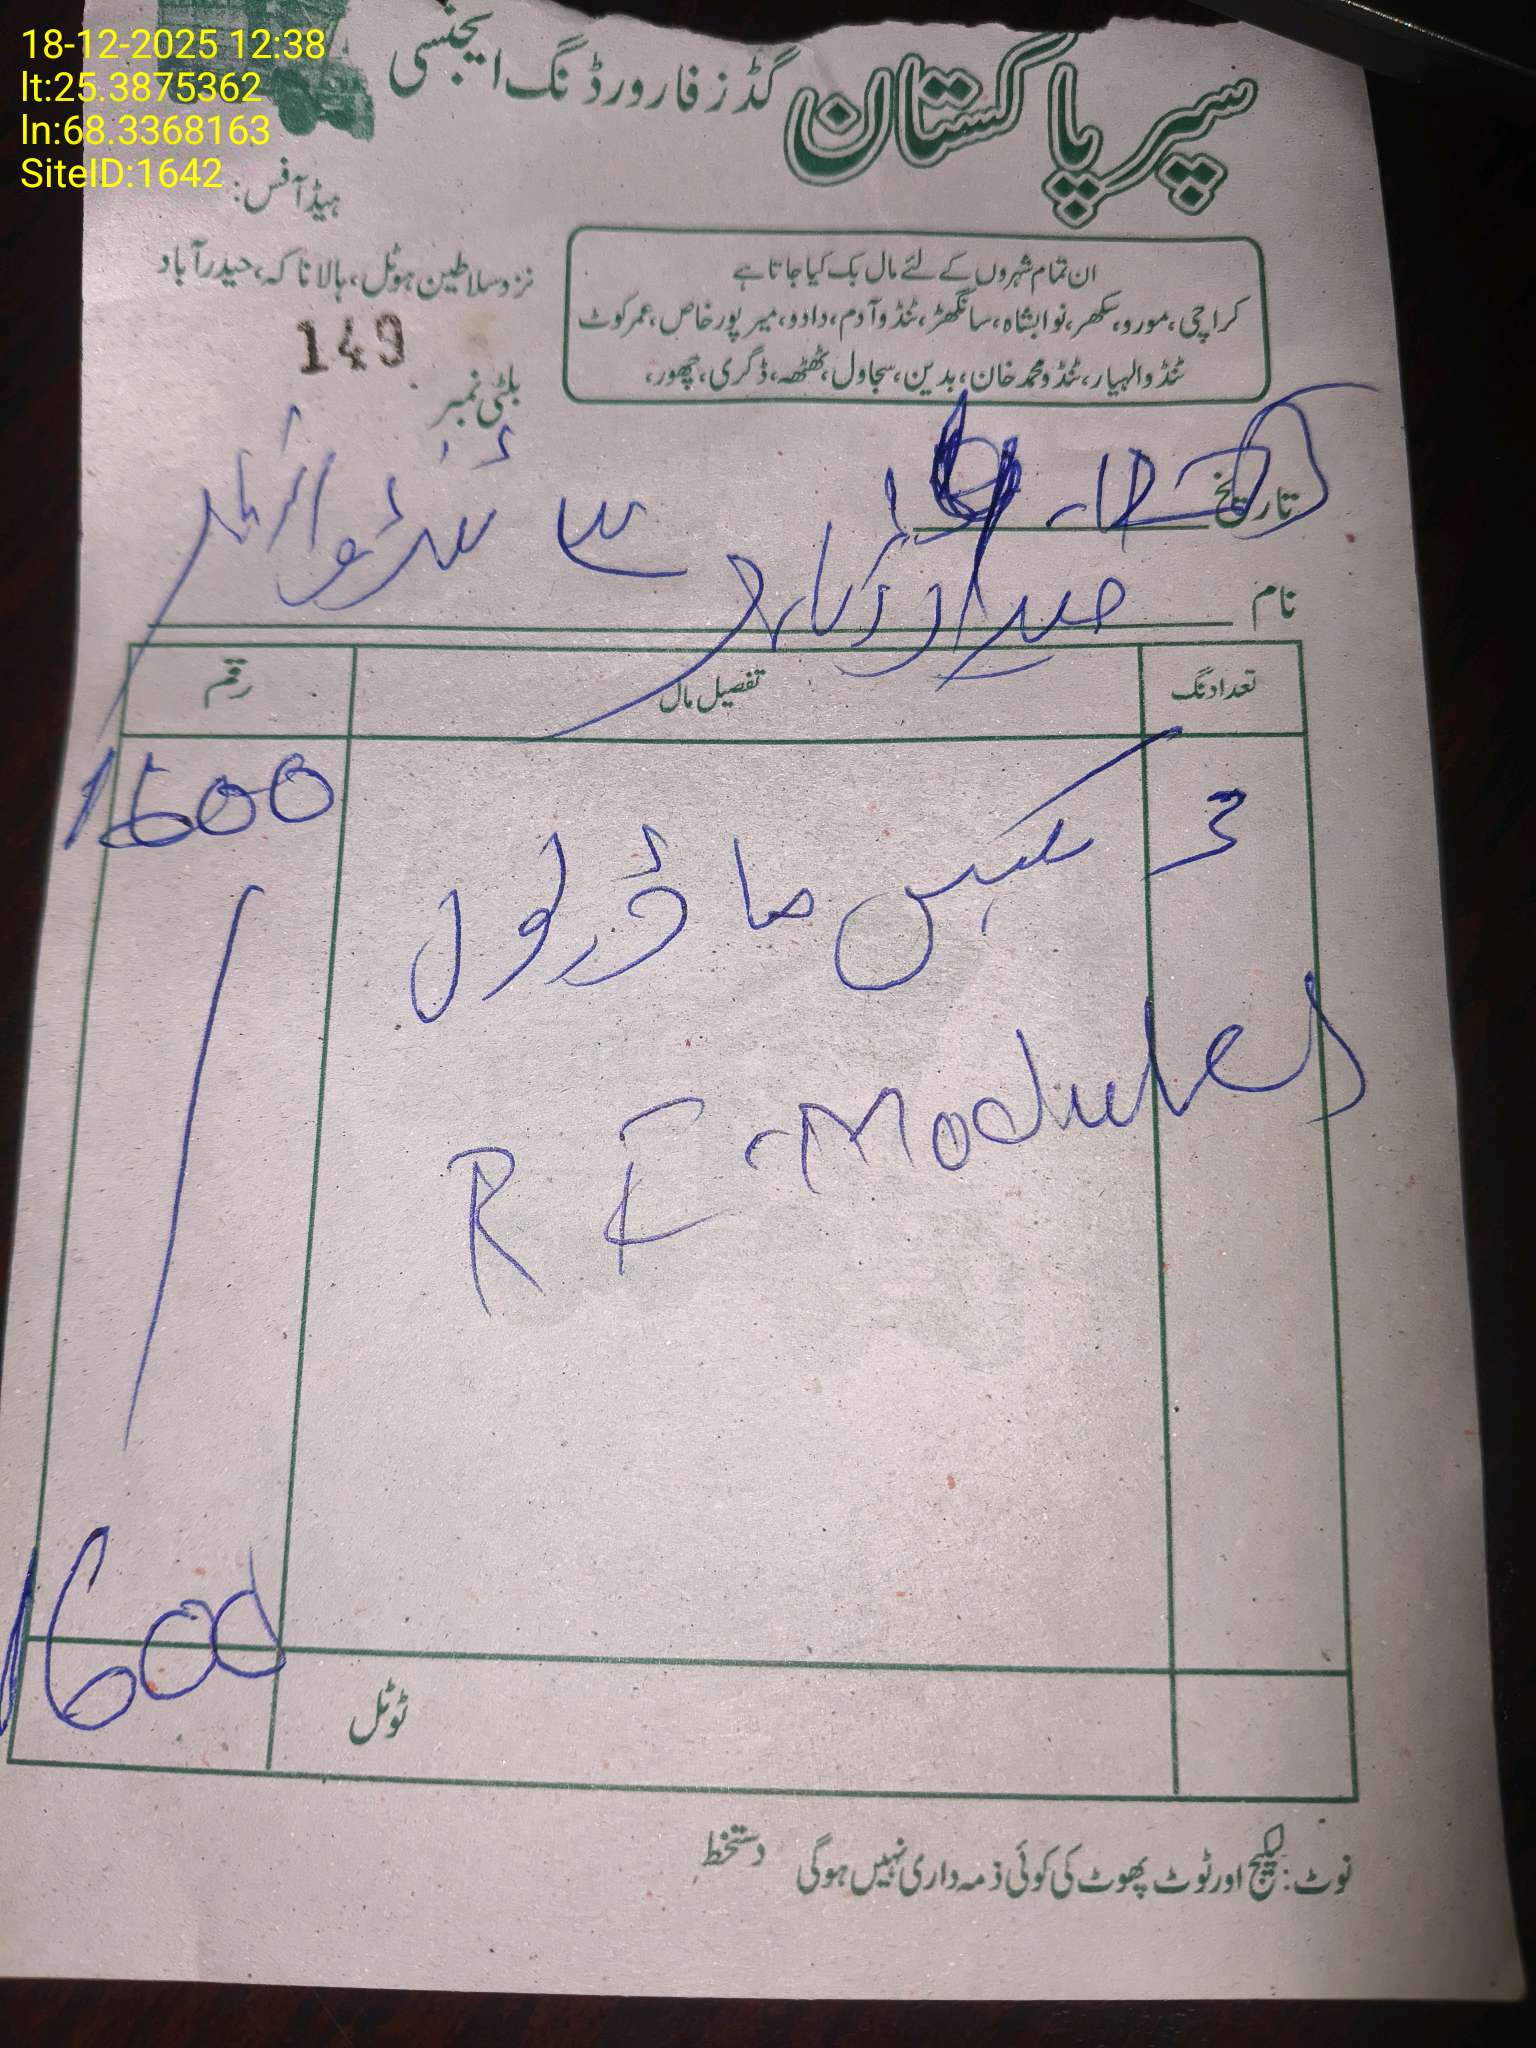 18-12-2025 12:38
lt:25.3875362
ln:68.3368163
SiteID:1642
سپر پاکستان گڈز فارورڈنگ ایجنسی
ہیڈ آفس:
نزد سلاطین ہوٹل، ہالا ناکہ، حیدرآباد
ان تمام شہروں کے لئے مال بک کیا جاتا ہے
کراچی، مورو، سکھر، نوابشاہ، سانگھڑ، ٹنڈو آدم، دادو، میرپور خاص، عمر کوٹ
ٹنڈو الہیار، ٹنڈو محمد خان، بدین، سجاول، ٹھٹھہ، ڈگری، چھور،
149
بلٹی نمبر
تاریخ
نام حیدرآباد سے ٹنڈو الہیار
تعداد نگ تفصیل مال رقم
3 بکس ماڈیول 1600
RF-Modules
ٹوٹل 1600
نوٹ: لیکیج اور ٹوٹ پھوٹ کی کوئی ذمہ داری نہیں ہوگی دستخط